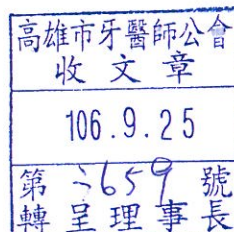 高雄市牙醫師公會
收文章
106.9.25
第 1659 號
轉呈理事長